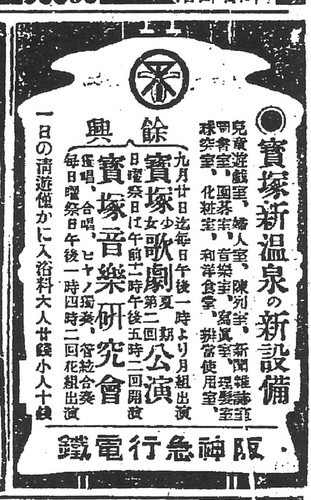 ◉寶塚新温泉の新設備
兒童遊戯室、婦人室、陳列室、新聞雜誌室
圖書室、圍碁室、音樂室、寫眞室、理髪室
球突室、化粧室、和洋食堂、辨當使用室、
餘興
九月廿日迄毎日午後一時より月組出演
寶塚少女歌劇夏期第二回公演
日曜祭日は午前十一時午後五時二回開演
寶塚音樂硏究會
獨唱、合唱、ピヤノ獨奏、管絃合奏
毎日曜祭日午後一時四時二回花組出演
一日の清遊僅かに入浴料大人廿錢小人十錢
阪神急行電鐵